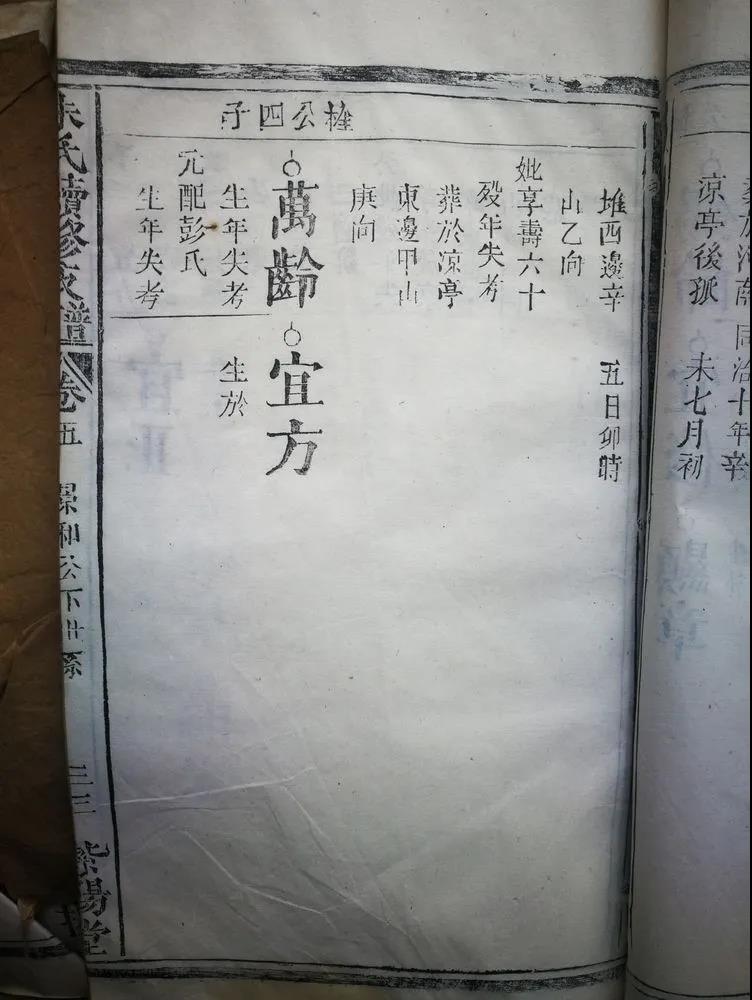 同治十年辛
涼亭後孤 未七月初
公四子
堆西邊辛 五日卯時
山乙向
妣享壽六十
歿年失考
葬於涼亭
東邊甲山
庚向
萬齡 宜方
生年失考 生於
元配彭氏
生年失考
朱氏續修支譜 卷五 和公下世系 三三 紫陽堂